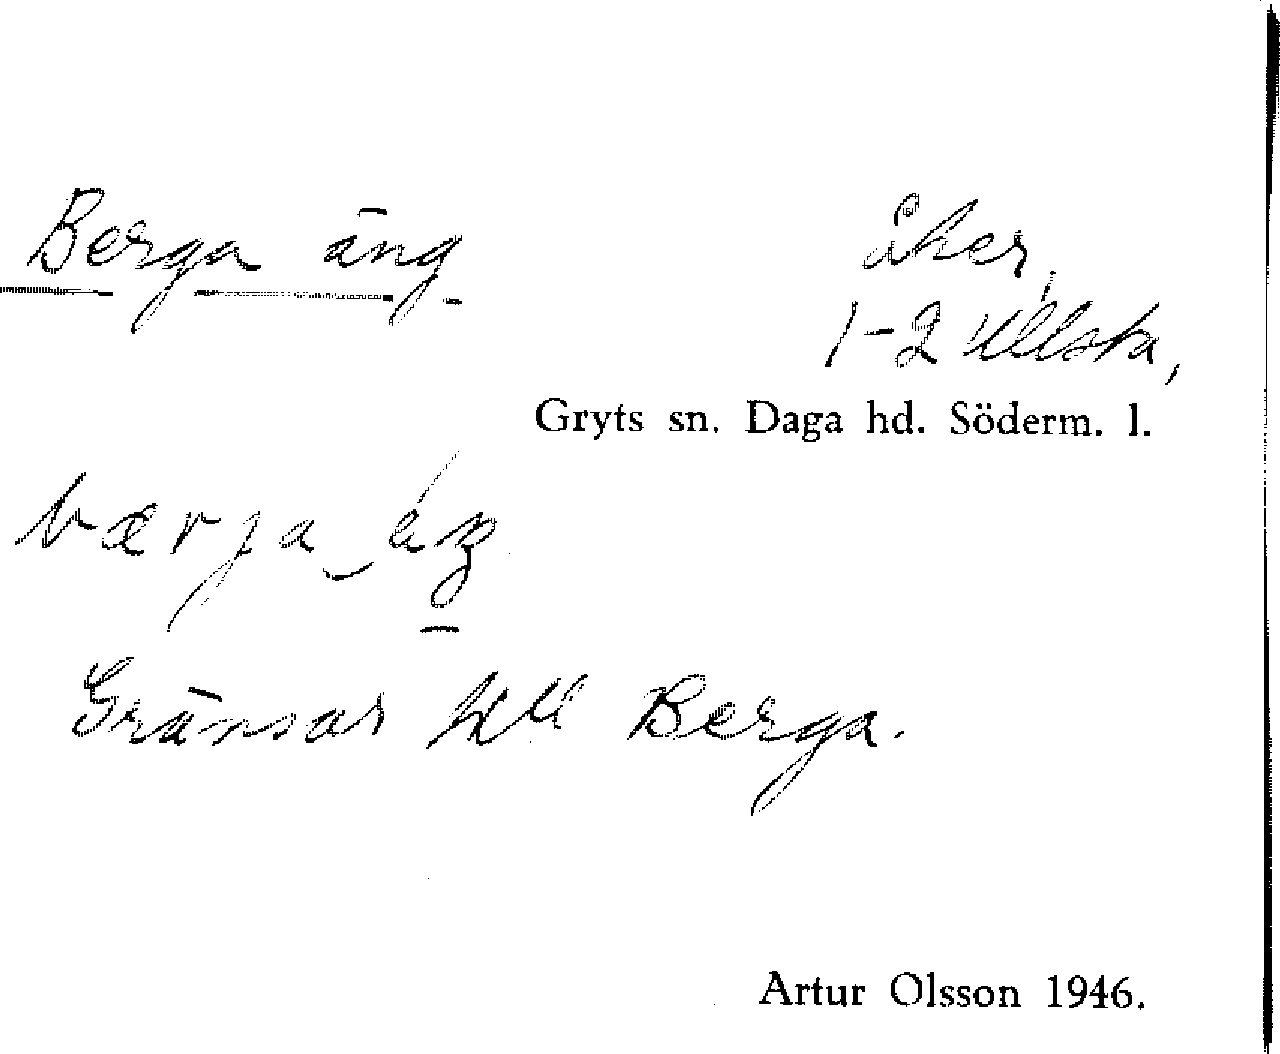 Berga äng
åker,
1-2 Ullsta,
Gryts sn. Daga hd. Söderm. l.
Gränsar till Berga.
Artur Olsson 1946.